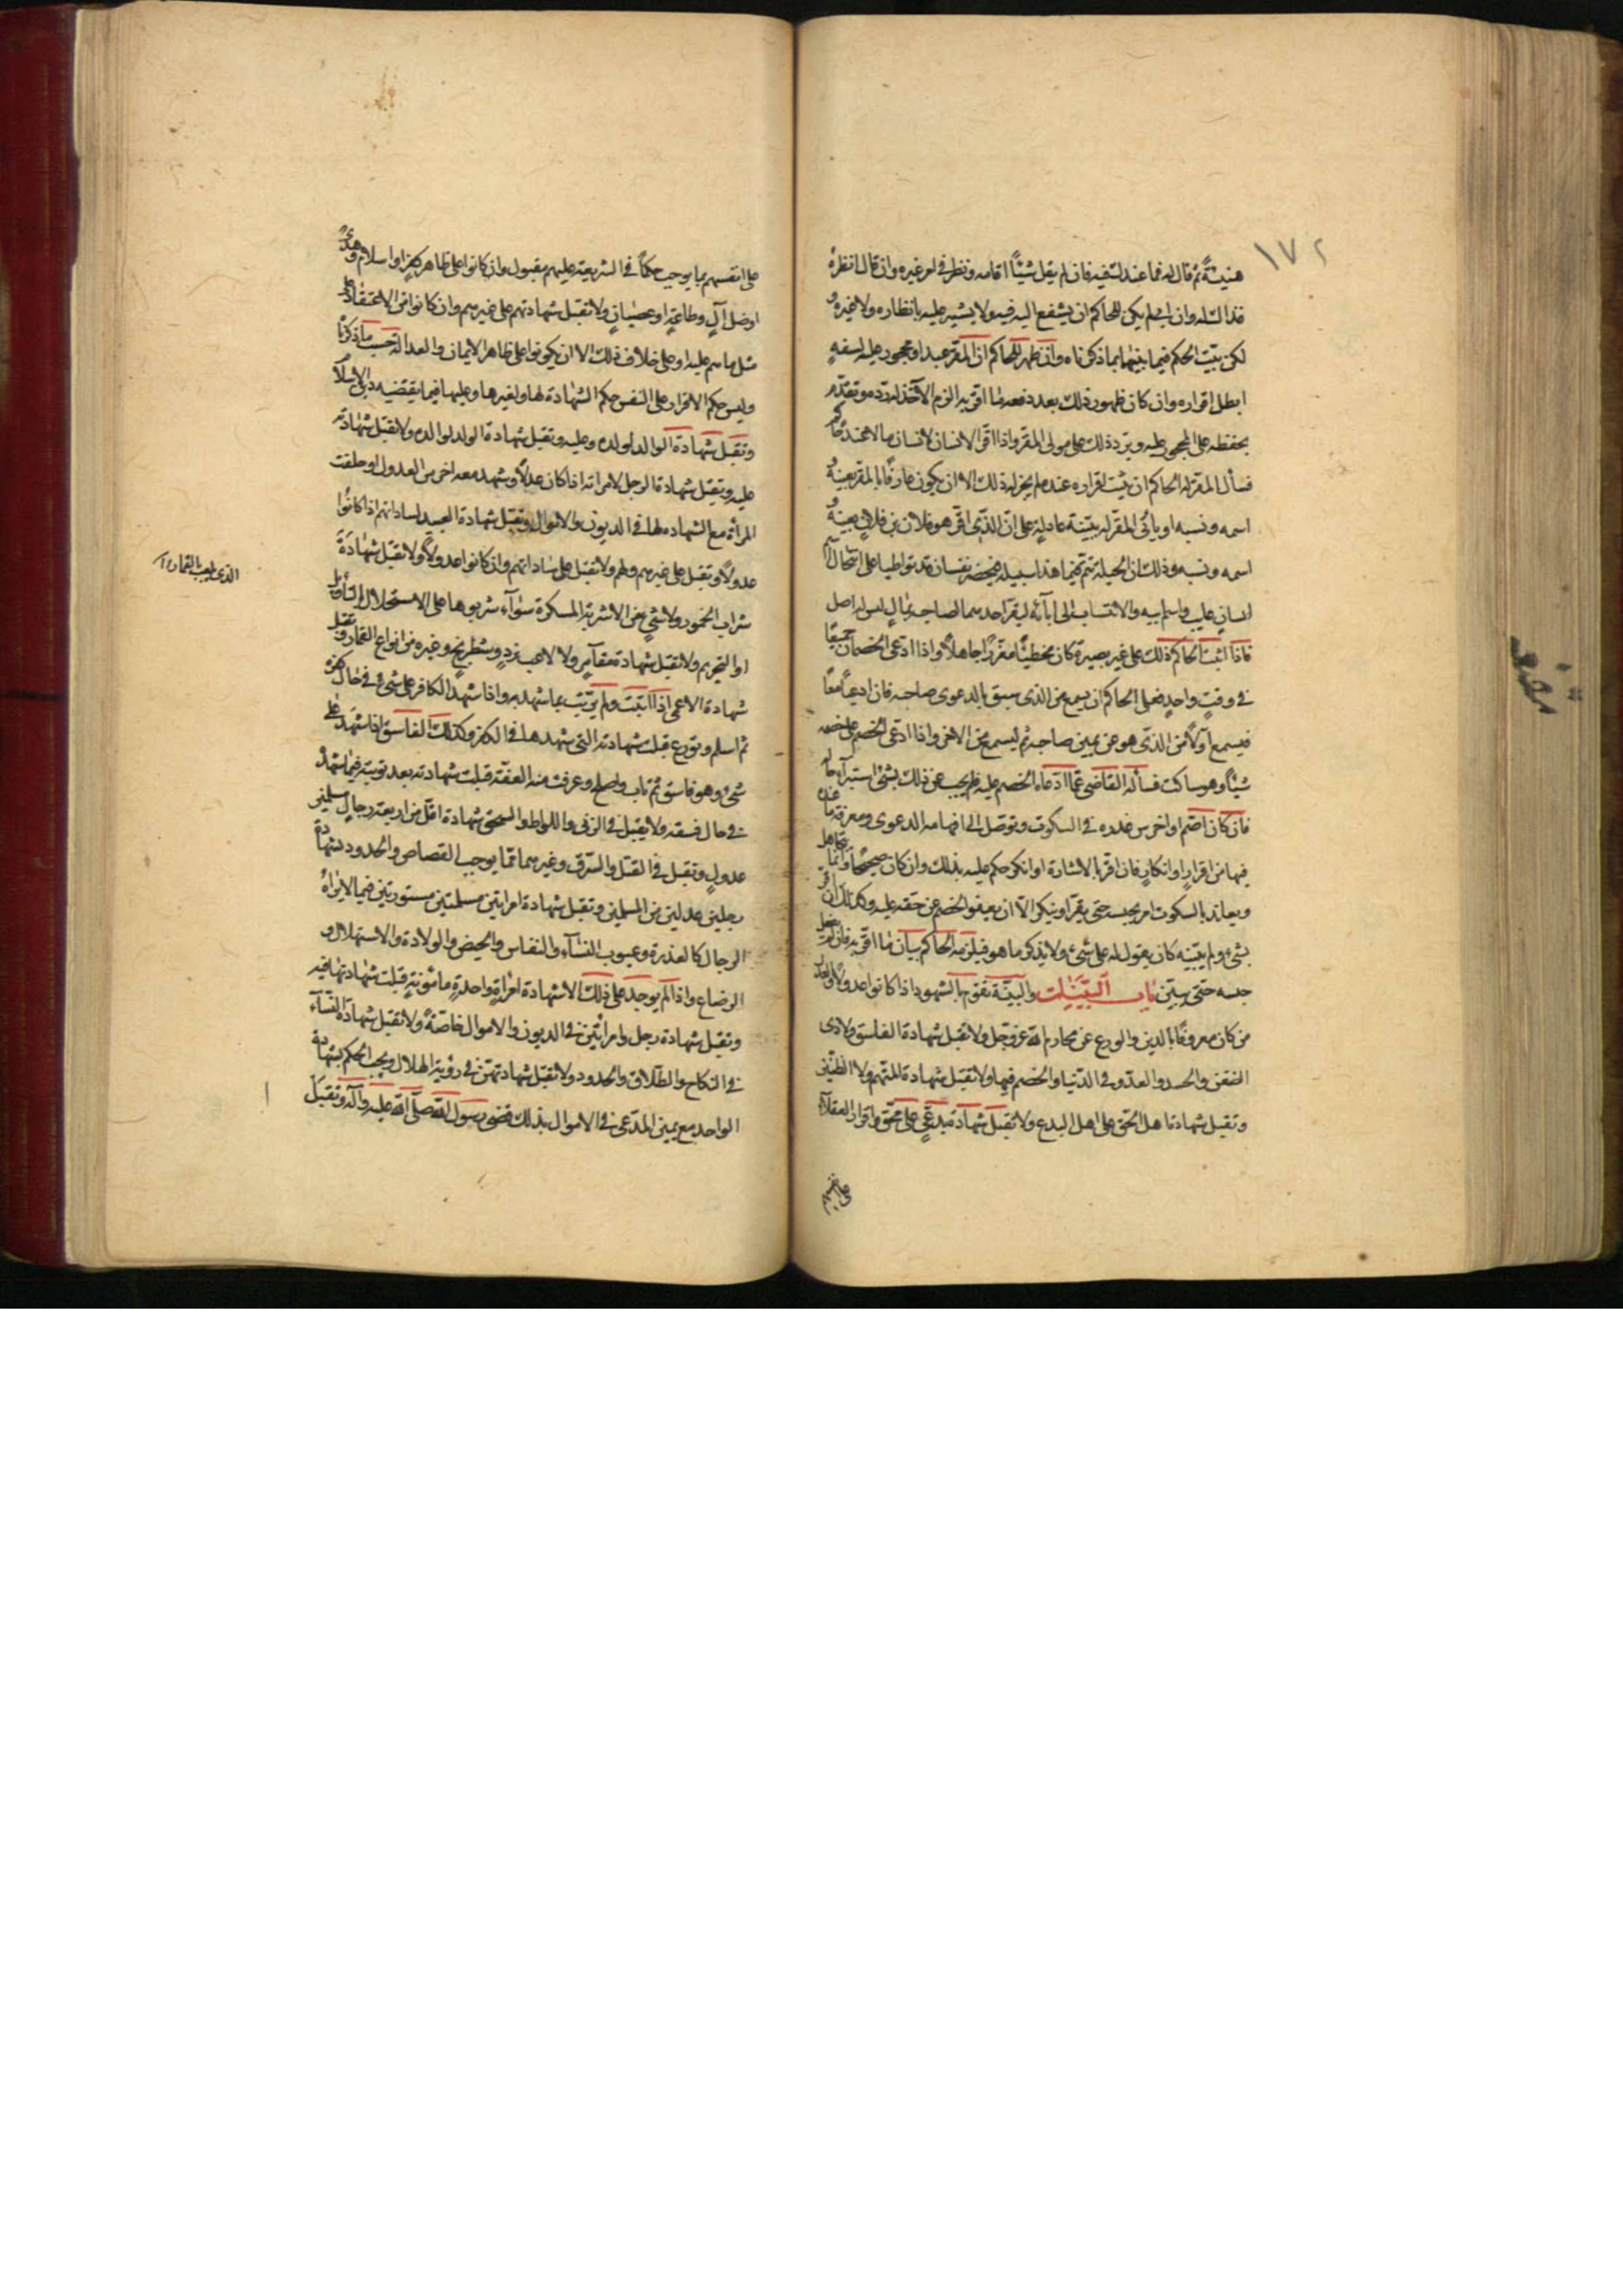 ١٧٢
هنيئة ثم قال له فما عندك فيه فان لم يقل شيئًا اقامه ونظر في امر غيره وان قال انظره
فذاك له وان ابى لم يكن للحاكم ان يشفع اليه فيه ولا يشير عليه بانظاره ولا غيره و
لكن يثبت الحكم فيما بينهما بما ذكرناه وان ظهر للحاكم ان المقر عبد او محجور عليه لسفهٍ
ابطل اقراره وان كان ظهور ذلك بعد دفعه ما اقر به الزم الآخذ له رده وتقدم
بحفظه على المحجور عليه ويرد ذلك على مولى المقر واذا اقر الانسان لانسان بمال عند حاكم
فسأل المقر له الحاكم ان يثبت اقراره عنده لم يجز له ذلك الا ان يكون عارفًا بالمقر بعينه و
اسمه ونسبه او يأتي المقر له ببيّنة عادلةٍ على ان الذي اقر هو فلان بن فلان بعينه و
اسمه ونسبه وذلك ان الحيلة تتم فيما هذا سبيله فيحضر نفسان قد تواطيا على انتحال اسم
انسان غايب واسم ابيه والانتساب الى آبائه ليقر احدهما لصاحبه بمالٍ ليس له اصل
فاذا اثبت الحاكم ذلك على غير بصيرة كان مخطئًا مغررًا جاهلًا واذا ادعى الخصمان جميعًا
في وقتٍ واحدٍ فعلى الحاكم ان يسمع من الذي سبق بالدعوى صاحبه فان ادعيا معًا
فيسمع اولًا من الذي هو عن يمين صاحبه ثم ليسمع من الاخر واذا ادعى الخصم على خصمه
شيئًا وهو ساكت فسأله القاضي عما ادعاه الخصم عليه فلم يجب عن ذلك بشئ استبرأ حاله
فان كان اصم او اخرس عذره في السكوت وتوصل الى افهامه الدعوى ومعرفة ما عنده
فيها من اقرارٍ او انكارٍ فان اقر بالاشارة او انكر حكم عليه بذلك وان كان صحيحًا وانما يتجاهل
ويعاند بالسكوت امر بحبسه حتى يقر او ينكر الا ان يعفو الخصم عن حقه عليه وكذلك ان اقر
بشئ ولم يبينه كان يقول له على شئ ولا يذكر ما هو فيلزمه الحاكم بيان ما اقر به فان لم يفعل
حبسه حتى يبيّن باب البيّنات والبيّنة تقوم بالشهود اذا كانوا عدولًا والعدل
من كان معروفًا بالدين والورع عن محارم الله عز وجل ولا تقبل شهادة الفاسق ولا ذى
الضغن والحسد والعدو في الدنيا والخصم فيها ولا تقبل شهادة المتهم ولا الظنين
وتقبل شهادة اهل الحق على اهل البدع ولا تقبل شهادة مبدعٍ على محق واقرار العقلاء
على انفسهم
على انفسهم بما يوجب حكمًا في الشريعة عليهم مقبول وان كانوا على ظاهر كفرٍ او اسلام وهدىً
او ضلالٍ وطاعةٍ او عصيانٍ ولا تقبل شهادتهم على غيرهم وان كانوا في الاعتقاد على
مثل ما هم عليه او على خلاف ذلك الا ان يكونوا على ظاهر الايمان والعدالة حسب ما ذكرنا
وليس حكم الاقرار على النفس حكم الشهادة لها ولغيرها وعليها فيما يقتضيه دين الاسلام
وتقبل شهادة الوالد لولده وعليه وتقبل شهادة الولد لوالده ولا تقبل شهادته
عليه وتقبل شهادة الرجل لامرأته اذا كان عدلًا وشهد معه اخر من العدول او حلفت
المرأة مع الشهاده لها في الديون والاموال وتقبل شهادة العبيد لساداتهم اذا كانوا
عدولًا وتقبل على غيرهم ولهم ولا تقبل على ساداتهم وان كانوا عدولًا ولا تقبل شهادة
شراب الخمور ولا شئٍ من الاشربة المسكرة سواء شربوها على الاستحلال بالتأويل
او التحريم ولا تقبل شهادة مقامر ولا لاعب نردٍ وشطرنجٍ وغيره من انواع القمار وتقبل
شهادة الاعمى اذا اثبت ولم يرتب بما شهد به واذا شهد الكافر على شئ في حال كفره
ثم اسلم وتورع قبلت شهادته التي شهد ها في الكفر وكذلك الفاسق اذا شهد على
شئ وهو فاسق ثم تاب واصلح وعرفت منه العفة قبلت شهادته بعد توبته فيما شهد
في حال فسقه ولا يقبل في الزنى واللواط والسحق شهادة اقل من اربعة رجال مسلمين
عدولٍ وتقبل في القتل والسرق وغيرهما مما يوجب القصاص والحدود شهادة
رجلين عدلين من المسلمين وتقبل شهادة امراتين مسلمتين مستورتين فيما لا يراه
الرجال كالعذرة وعيوب النساء والنفاس والحيض والولادة والاستهلال و
الرضاع واذا لم يوجد على ذلك الا شهادة امراةٍ واحدةٍ مامونةٍ قبلت شهادتها فيه
وتقبل شهادة رجل وامرأتين في الديون والاموال خاصةً ولا تقبل شهادة النساء
في النكاح والطلاق والحدود ولا تقبل شهادتهن في رؤية الهلال ويجب الحكم بشهادة
الواحد مع يمين المدعى في الاموال بذلك قضى رسول الله صلى الله عليه وآله وتقبل
الذي يلعب بالقمار